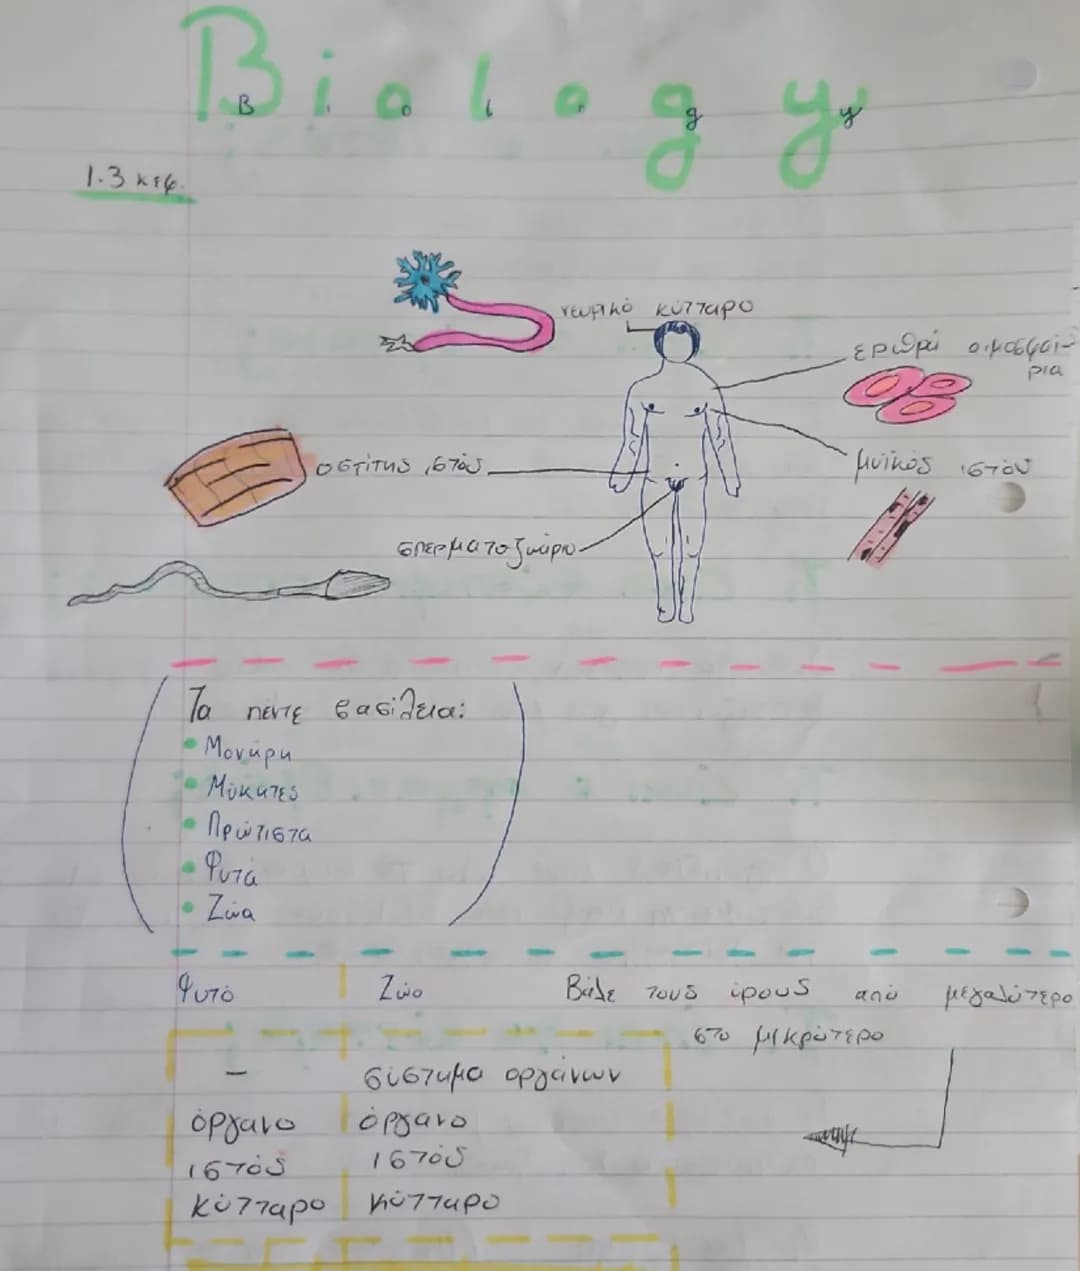 Biology
B i o l o g y
1.3 κεφ.
νευρικό κύτταρο
ερυθρά αιμοσφαί-
ρια
οστίτης ιστός
μυϊκός ιστός
σπερματοζωάριο
Τα πέντε βασίλεια:
Μονήρη
Μύκητες
Πρώτιστα
Φυτά
Ζώα
Φυτό Ζώο Βάλε τους όρους από μεγαλύτερο
στο μικρότερο
– σύστημα οργάνων
όργανο όργανο
ιστός ιστός
κύτταρο κύτταρο